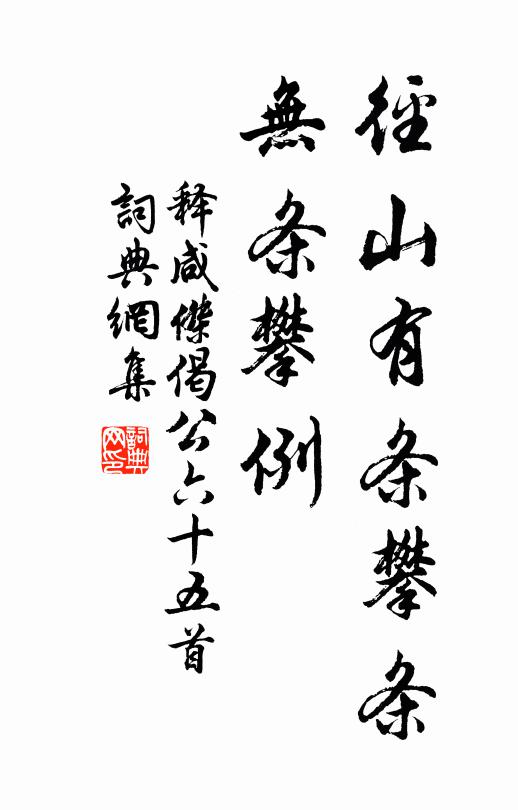 徑山有条攀条
無条攀例
释咸傑偈公六十五首
詞典網集
詞典网印